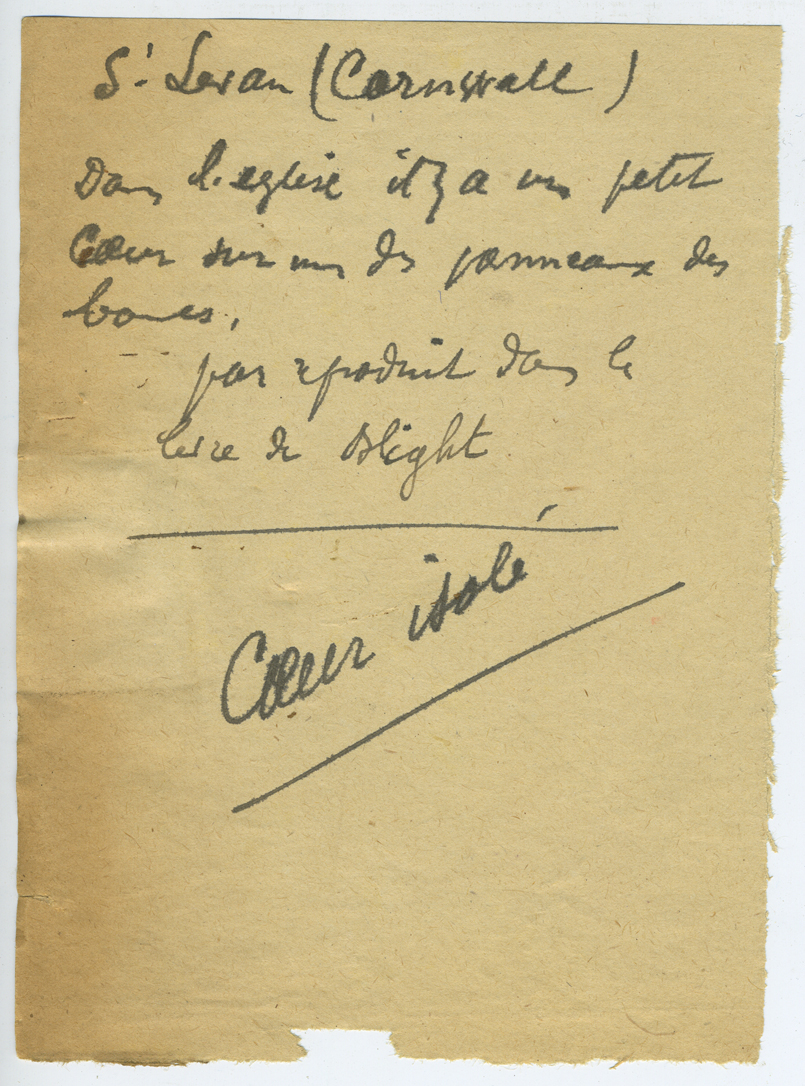 St Levan (Cornwall)
Dans l'eglise il y a un petit
Cœur sur un des panneaux des
bancs,
pas reproduit dans le
livre de Blight
Cœur isolé